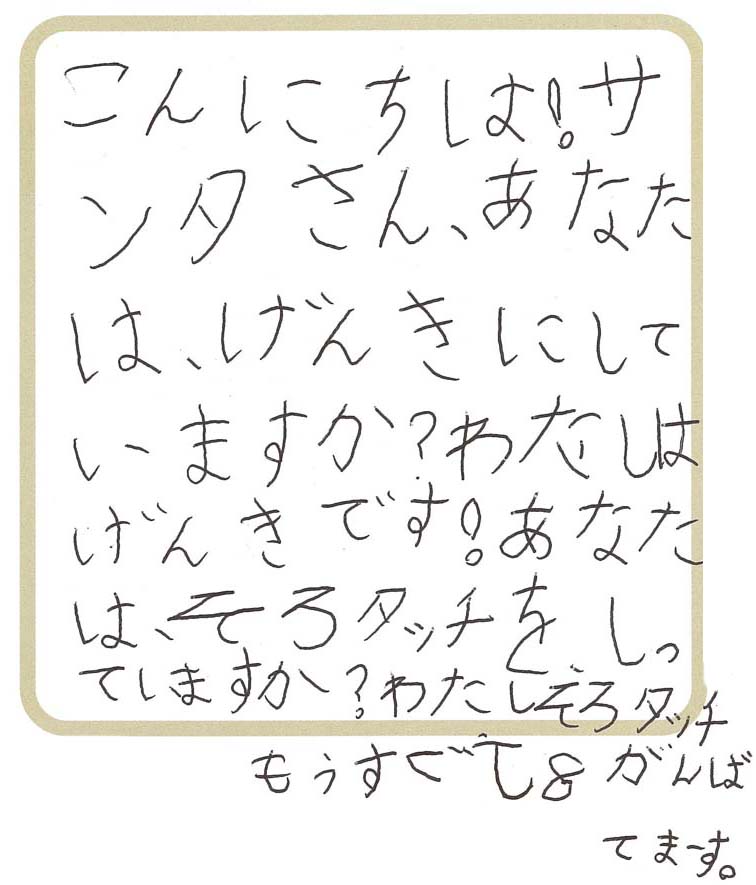 こんにちは!サ
ンタさん、あなた
は、げんきにして
いますか?わたしは
げんきです!あなた
は、そろタッチをしっ
ていますか?わたしそろタッチ
もうすぐで8がんば
てます。